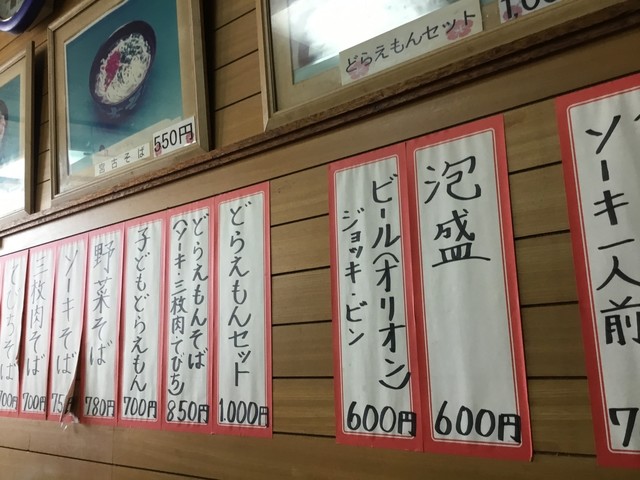 どらえもんセット
1,00
宮古そば
550円
ソーキ一人前
7
泡盛
600円
ビール(オリオン)
ジョッキ ビン
600円
どらえもんセット
1.000円
どらえもんそば
(ソーキ 三枚肉 てびち)
850円
子どもどらえもん
700円
野菜そば
780円
ソーキそば
75
三枚肉そば
700円
てびちそば
700円